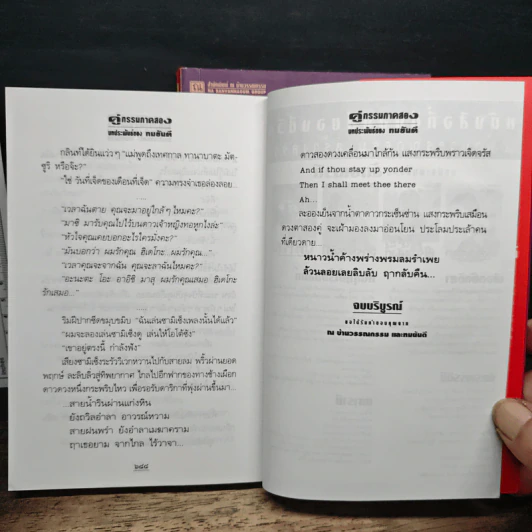 คู่กรรมภาคสอง
บทประพันธ์ของ ทมยันตี
กลินท์ได้ยินแว่วๆ "แม่พูดถึงเทศกาล ทานาบาตะ มัต-
ซูริ หรือจ๊ะ?"
"ใช่ วันที่เจ็ดของเดือนที่เจ็ด" ความทรงจำเธอล่องลอย...
....
"เวลาฉันตาย คุณจะมาอยู่ใกล้ๆ ไหมคะ?"
"มาซิ มารับคุณไปไว้บนดาวเจ้าหญิงทอหูกไงล่ะ"
"หัวใจคุณเคยบอกอะไรใครมั่งคะ?"
"มันบอกว่า ผมรักคุณ ฮิเดโกะ. ผมรักคุณ..."
"เวลาคุณจะจากฉัน คุณจะลาฉันไหมคะ?"
"อะนะตะ โอะ อาอิชิ มาสุ ผมรักคุณเสมอ ฮิเดโกะ
รักเสมอ..."
....
ริมฝีปากซีดขมุบขมิบ "ฉันเล่นซามิเซ็งเพลงนั้นได้แล้ว"
"ผมจะลองเล่นซามิเซ็งดู เล่นให้โอโต้ซัง"
"เขาอยู่ตรงนี้ กำลังฟัง"
เสียงซามิเซ็งระรัววิเวกหวานไปกับสายลม พริ้วผ่านยอด
พฤกษ์ ละลิบลิ่วสู่ทิพยากาศ ไกลไปอีกฟากของทางช้างเผือก
ดาวดวงหนึ่งกระพริบไหว เพื่อรอรับดาริกาที่พุ่งผ่านขึ้นมา...
...สายน้ำรินผ่านแก่งหิน
ยังถวิลอำลา อาวรณ์หวาม
สายฝนพรำ ยังอำลาเมฆาคราม
ฤาเธอยาม จากไกล ไร้วาจา...
๖๔๘
คู่กรรมภาคสอง
บทประพันธ์ของ ทมยันตี
ดาวสองดวงเคลื่อนมาใกล้กัน แสงกระพริบพราวเจิดจรัส
And if thou stay up yonder
Then I shall meet thee there
Ah...
ละอองเย็นจากน้ำตาดาวกระเซ็นซ่าน แสงกระพริบเสมือน
ดวงตาสองคู่ จะเฝ้ามองลงมาอ่อนโยน ประโลมประเล้าคน
ที่เดียวดาย...
หนาวน้ำค้างพร่างพรมลมรำเพย
ล้วนลอยเลยลิบลับ ฤากลับคืน...
จบบริบูรณ์
ณ บ้านวรรณกรรม และทมยันตี